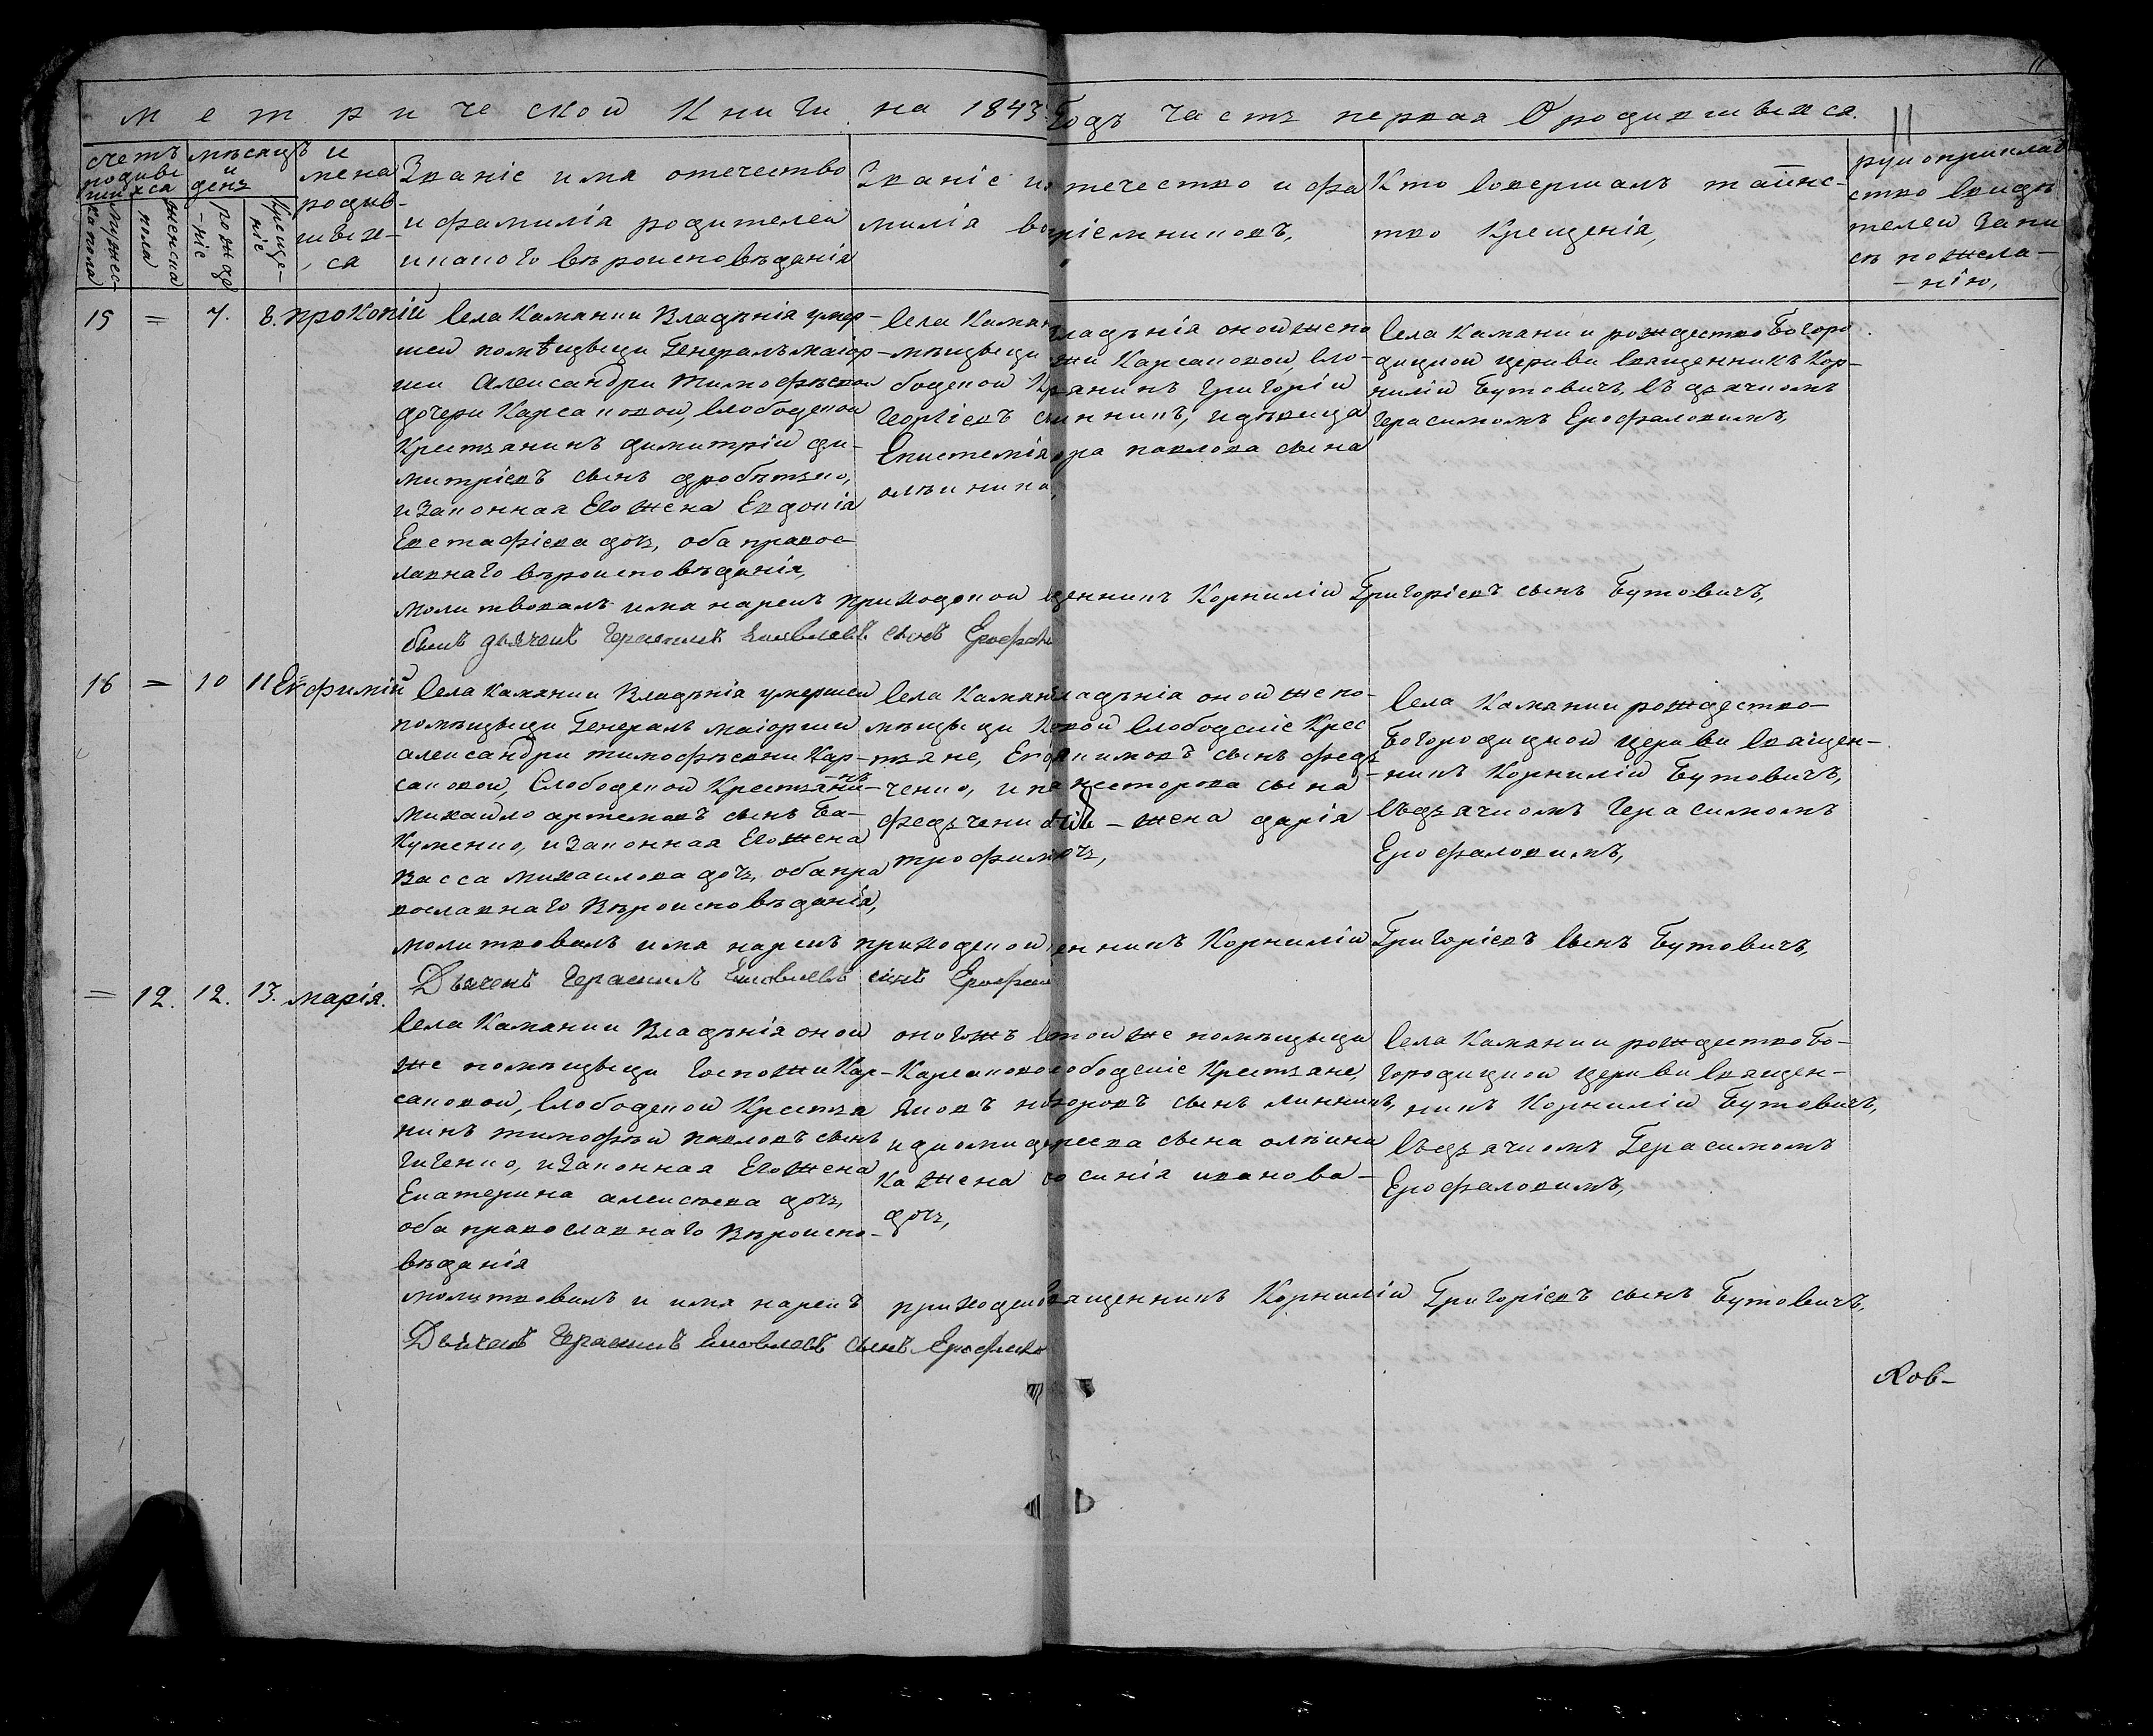 метрической Книги на 1843 Годъ Часть первая О родившихся.
11
счетъ родившихся
мужеска пола
женска пола
мѣсяцъ и день
рождение
крещеніе
имена родившихся
Званіе имя отечество
и фамилія родителей
и какого вѣроисповѣданія
Званіе и отечество и фа
милія во пріемниковъ,
Кто совершалъ таинс-
тво Крещенія,
рукоприклад
ство свидѣ
телей запи
си по жела-
-нію,
15 = 7. 8. Прокопій
Села Камянки Владѣнія умер-
шей помѣщыци Генералъ маіор-
ши Александри Тимофѣевой
дочери Карсаковой, Слободской
Крестянинъ димитрій ди-
митріевъ сынъ дробѣтько,
и Законная Его жена Евдокія
Евстафіева дочь, оба правос-
лавнаго вѣроисповѣданія,
Села Камян владѣнія оной же по
мѣщыци жи Карсаковой, сло-
бодской Кр янинъ Григорій
Георгіевъ с инникъ, и дѣвица
Епистемія ора павлова сына
олѣиника,
Села Камянки рождество Богоро
дицкой церкви Священникъ Кор-
нилій Бутовичъ, съ дьячкомъ
Герасимомъ Ерофаловимъ,
молитвовалъ имя нарекъ приходской щенникъ Корнилій Григоріевъ сынъ Бутовичъ,
дьячекъ Герасимъ Яковлевъ сынъ Ерофал
16 = 10 11 Евфимій
Села Камянки Владѣнія умершей
помѣщыци Генералъ маіорши
александри тимофѣевни Кар-
саковой, Слободской Крестяни-
нъ
Михайло артемовъ сынъ Ба-
куменко, и Законная Его жена
Васса михаилова дочь, оба пра
вославнаго Вѣроисповѣданія,
Села Камян ладѣнія оной же по-
мѣщыци К ковой Слободскіе Крес
тяне, Его акимовъ сынъ федь
ченко, и па несторова сына
федьченк - жена дарія
трофим чь,
Села Камянки рождество-
Богородицкой церкви Священ-
никъ Корнилій Бутовичъ,
съ дьячкомъ Герасимомъ
Ерофаловимъ,
молитвовалъ имя нарекъ приходской енникъ Корнилій Григоріевъ сынъ Бутовичъ,
Дьячекъ Герасимъ Яковлевъ сынъ Ерофал
= 12. 12. 13. марія.
Села Камянки Владѣнія оной
же помѣщыци Госпожи Кар-
саковой, Слободской Крестя
нинъ тимофѣй павловъ сынъ
гиченко, и Законная Его жена
Екатерина алексѣева дочь,
оба православнаго Вѣроиспо-
вѣданія
оногожъ с той же помѣщыци
Карсаково ободскіе Крестяне,
Яковъ н оровъ сынъ линникъ,
и диомид реева сына олѣини
ка жена синія иванова-
дочь,
Села Камянки рождество Бо-
городицкой церкви Священ-
никъ Корнилій Бутовичъ,
съ дьячкомъ Герасимомъ
Ерофаловимъ,
молитвовалъ и имя нарекъ приходской ященникъ Корнилій Григоріевъ сынъ Бутовичъ,
Дьячекъ Герасимъ Яковлевъ сынъ Ерофал